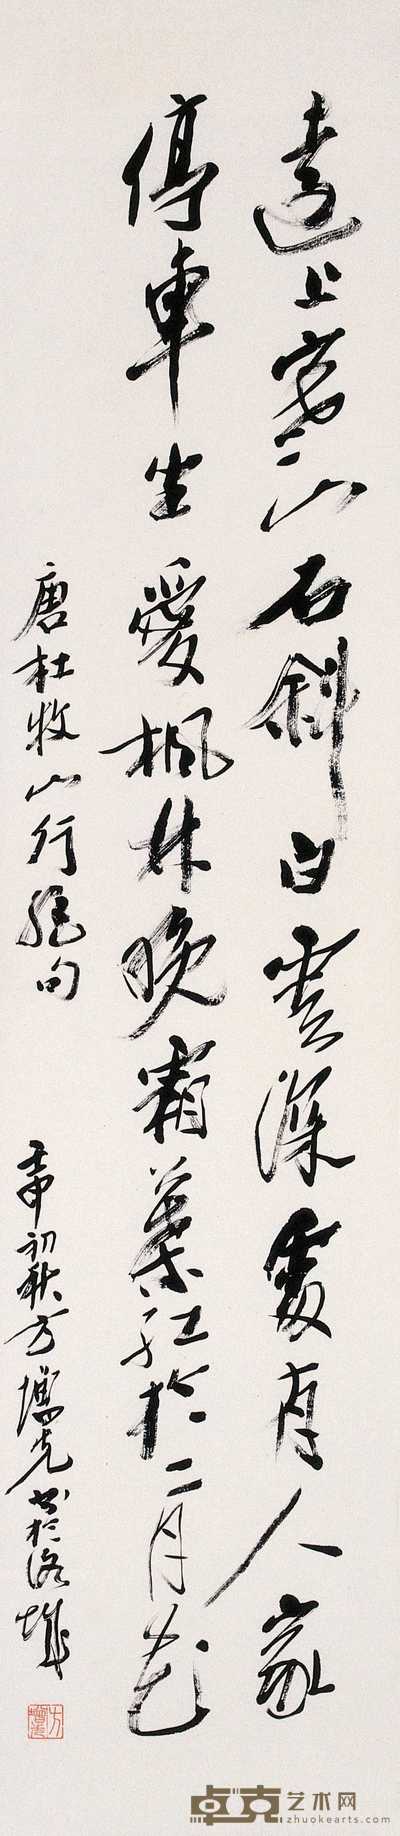 遠上寒山石斜白雲深處有人家
停車坐愛楓林晚霜葉紅於二月花
唐杜牧山行絕句
壬申初秋方增先書於洛城
方增先
卓克艺术网
zhuokearts.com